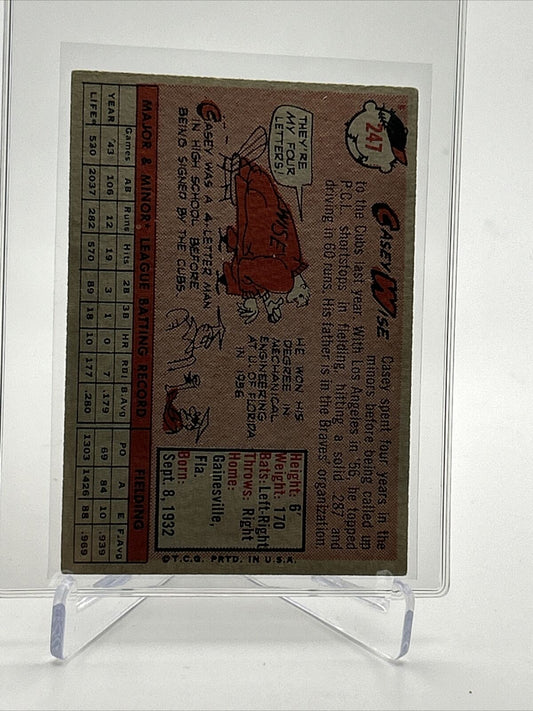 247
CASEY WISE
Casey spent four years in the
minors before being called up
to the Cubs last year. With Los Angeles in '56, he topped
P.C.L. shortstops in fielding, hitting a solid .287 and
driving in 60 runs. His father, is in the Braves' organization
THEY'RE
MY FOUR
LETTERS!
WISE
CASEY WAS A 4-LETTER MAN
IN HIGH SCHOOL BEFORE
BEING SIGNED BY THE CUBS.
HE WON HIS
DEGREE IN
MECHANICAL
ENGINEERING
AT U OF FLORIDA
IN 1956
Height: 6'
Weight: 170
Bats: Left-Right
Throws: Right
Home:
Gainesville,
Fla.
Born:
Sept. 8, 1932
MAJOR & MINOR* LEAGUE BATTING RECORD FIELDING
Games AB Runs Hits 2B 3B HR RBI B.Avg PO A E F.Avg
YEAR '43 106 12 19 3 1 0 7 .179 69 84 10 .939
LIFE* 530 2037 282 570 89 18 10 177 .280 1303 1426 88 .969
©T.C.G. PRTD. IN U.S.A.